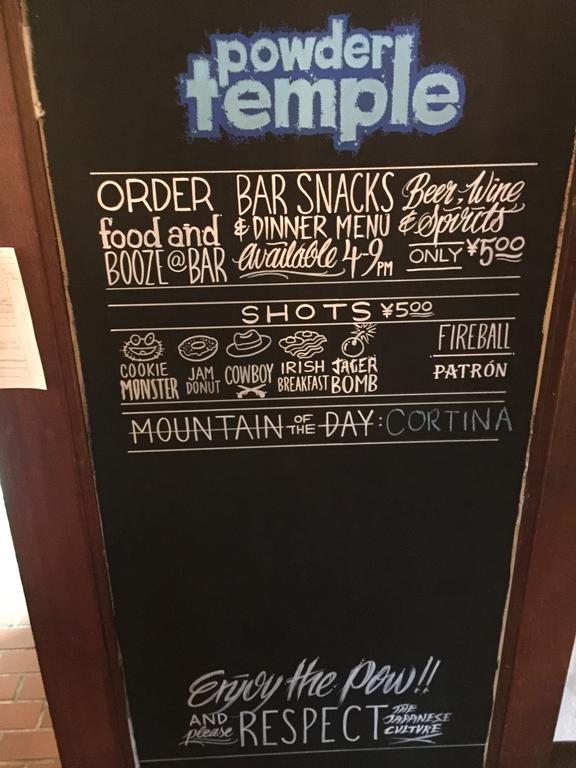 powder
temple
ORDER
food and
BOOZE @ BAR
BAR SNACKS
& DINNER MENU
available 4-9PM
Beer, Wine
& Spirits
ONLY ¥500
SHOTS ¥500
COOKIE
MONSTER
JAM
DONUT
COWBOY
IRISH
BREAKFAST
JAGER
BOMB
FIREBALL
PATRÓN
MOUNTAIN OF THE DAY: CORTINA
Enjoy the Pow!!
AND please RESPECT THE JAPANESE CULTURE